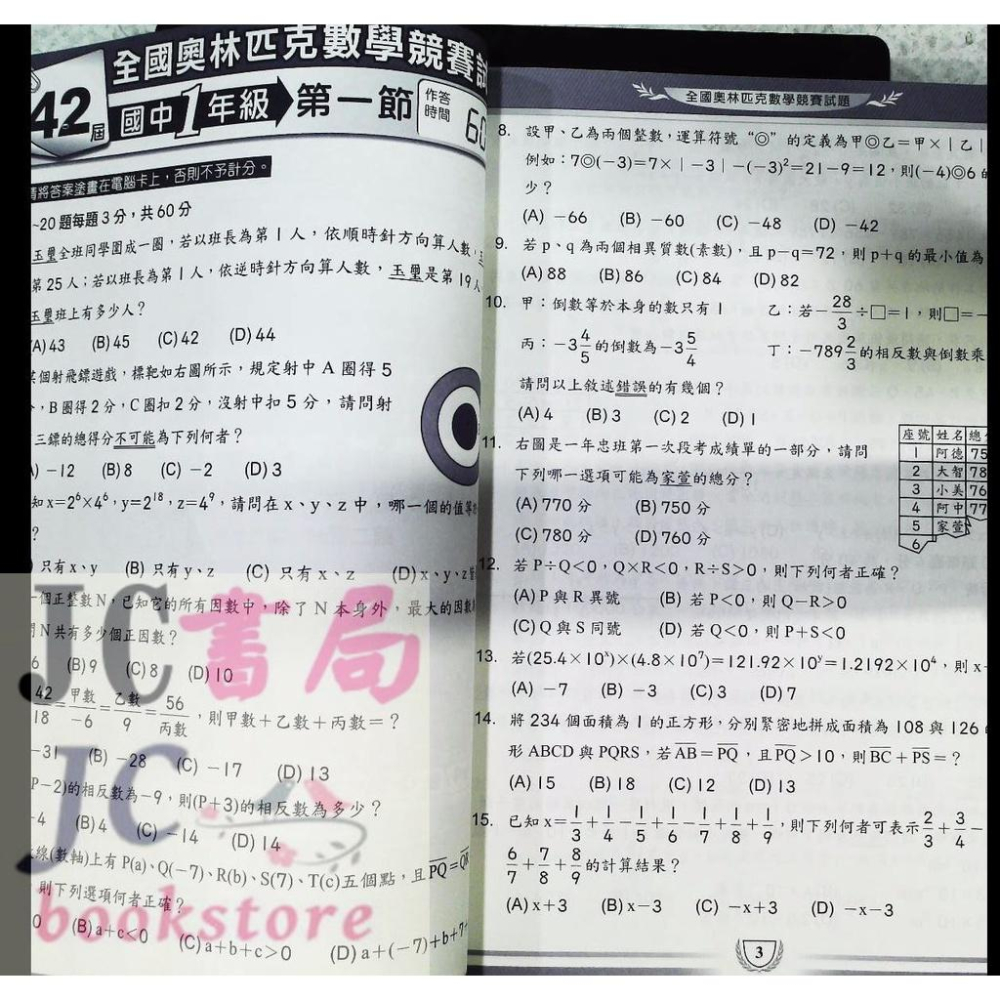 全國奧林匹克數學競賽試
42屆 國中1年級 第一節 作答時間 60
請將答案塗畫在電腦卡上,否則不予計分。
~20題每題3分,共60分
玉璽全班同學圍成一圈,若以班長為第1人,依順時針方向算人數,
第25人;若以班長為第1人,依逆時針方向算人數,玉璽是第19人
玉璽班上有多少人?
(A)43 (B)45 (C)42 (D)44
某個射飛鏢遊戲,標靶如右圖所示,規定射中A圈得5
,B圈得2分,C圈扣2分,沒射中扣5分,請問射
三鏢的總得分不可能為下列何者?
) -12 (B)8 (C) -2 (D)3
知x=2⁶×4⁶,y=2¹⁸,z=4⁹,請問在x、y、z中,哪一個的值等
?
只有x、y (B) 只有y、z (C) 只有x、z (D)x、y、z
一個正整數N,已知它的所有因數中,除了N本身外,最大的因數
問N共有多少個正因數?
6 (B)9 (C)8 (D)10
42/18=甲數/-6=乙數/9=56/丙數,則甲數+乙數+丙數=?
-31 (B) -28 (C) -17 (D)13
P-2)的相反數為-9,則(P+3)的相反數為多少?
-4 (B)4 (C) -14 (D)14
線(數軸)上有P(a)、Q(-7)、R(b)、S(7)、T(c)五個點,且PQ=QR
則下列選項何者正確?
0 (B)a+c<0 (C)a+b+c>0 (D)a+(-7)+b+7+
全國奧林匹克數學競賽試題
8. 設甲、乙為兩個整數,運算符號“◎”的定義為甲◎乙=甲×|乙|
例如:7◎(-3)=7×|-3|-(-3)²=21-9=12,則(-4)◎6的
少?
(A) -66 (B) -60 (C) -48 (D) -42
9. 若p、q為兩個相異質數(素數),且p-q=72,則p+q的最小值為
(A)88 (B)86 (C)84 (D)82
10. 甲:倒數等於本身的數只有1 乙:若-28/3÷□=1,則□=-
丙:-3 4/5的倒數為-3 5/4 丁:-789 2/3的相反數與倒數乘
請問以上敘述錯誤的有幾個?
(A)4 (B)3 (C)2 (D)1
11. 右圖是一年忠班第一次段考成績單的一部分,請問
下列哪一選項可能為家萱的總分?
(A)770分 (B)750分
(C)780分 (D)760分
座號 姓名 總
1 阿德 75
2 大智 78
3 小美 76
4 阿中 77
5 家萱
6
12. 若P÷Q<0,Q×R<0,R÷S>0,則下列何者正確?
(A)P與R異號 (B) 若P<0,則Q-R>0
(C)Q與S同號 (D) 若Q<0,則P+S<0
13. 若(25.4×10ˣ)×(4.8×10⁷)=121.92×10ʸ=1.2192×10⁴,則x
(A) -7 (B) -3 (C)3 (D)7
14. 將234個面積為1的正方形,分別緊密地拼成面積為108與126
形ABCD與PQRS,若AB=PQ,且PQ>10,則BC+PS=?
(A)15 (B)18 (C)12 (D)13
15. 已知x=1/3+1/4-1/5+1/6-1/7+1/8+1/9,則下列何者可表示2/3+3/4-
6/7+7/8+8/9的計算結果?
(A)x+3 (B)x-3 (C) -x+3 (D) -x-3
3
JC書局
JC
bookstore